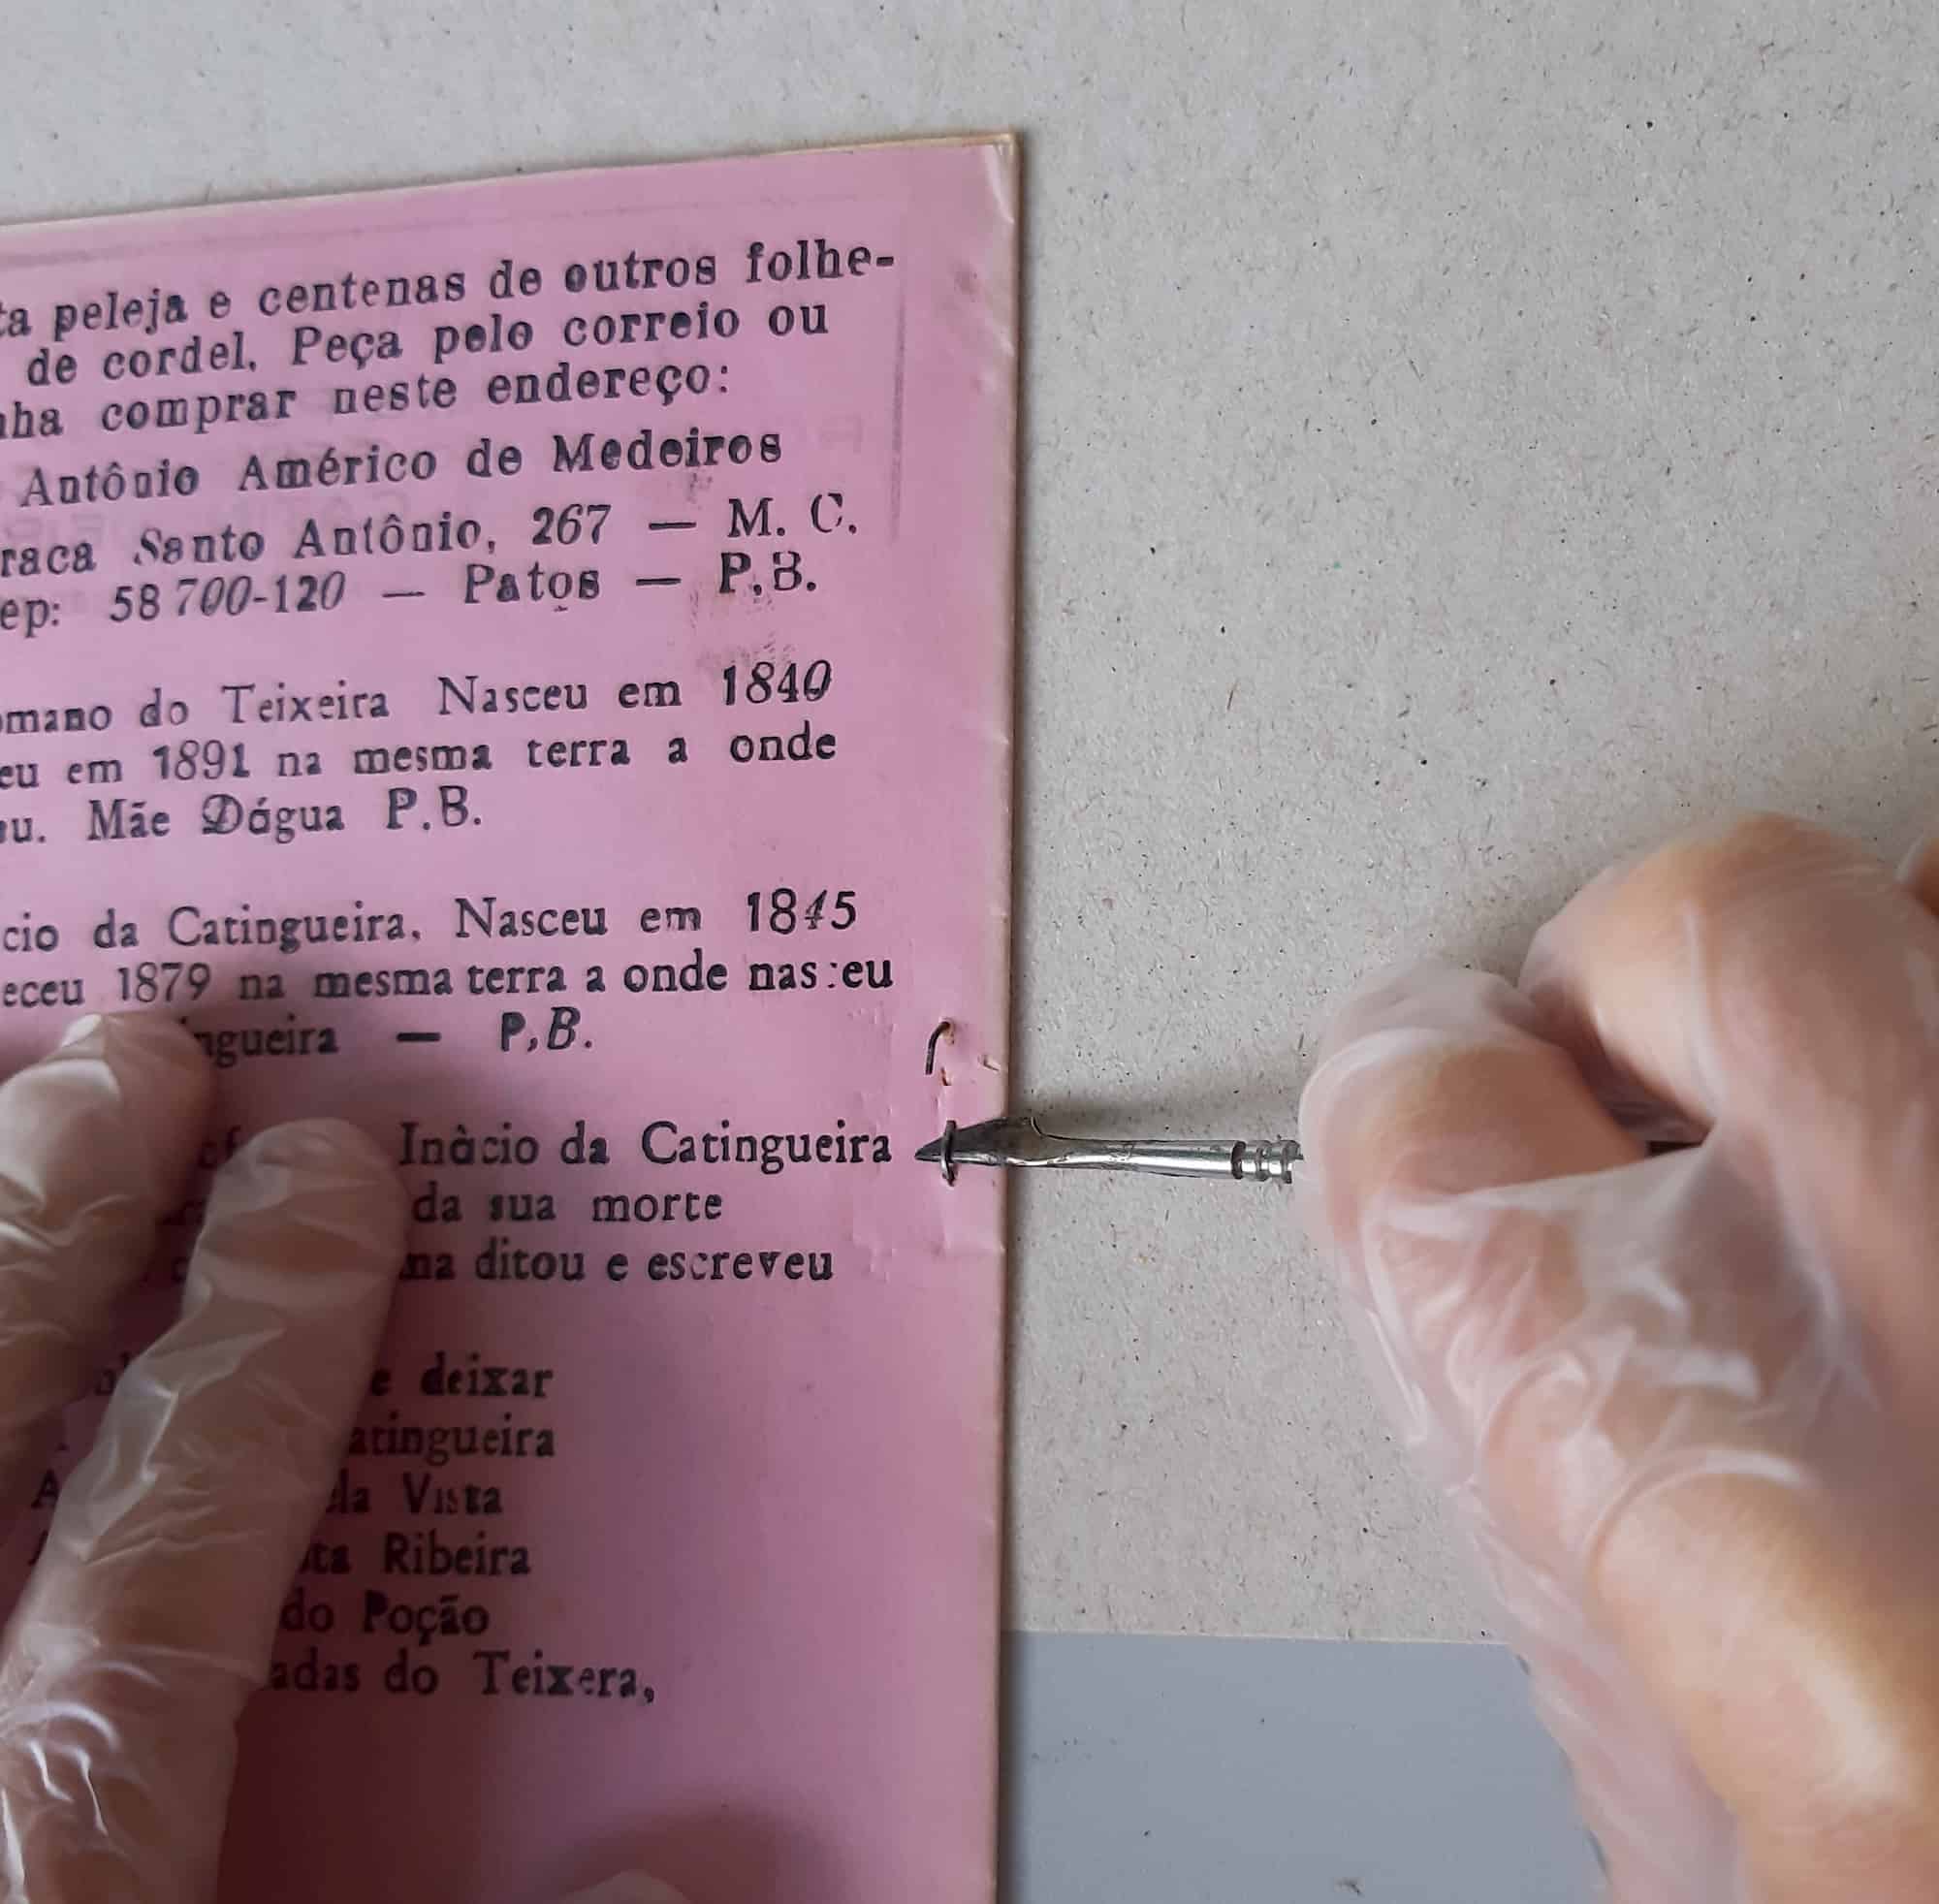 peleja e centenas de outros folhe-
de cordel. Peça pelo correio ou
comprar neste endereço:
Antônio Américo de Medeiros
Santo Antônio, 267 — M. C.
58 700-120 — Patos — P.B.
do Teixeira Nasceu em 1840
em 1891 na mesma terra a onde
Mãe Dágua P.B.
da Catingueira. Nasceu em 1845
1879 na mesma terra a onde nas:eu
P,B.
Inàcio da Catingueira
da sua morte
ditou e escreveu
deixar
Vista
Ribeira
do Poção
do Teixera,